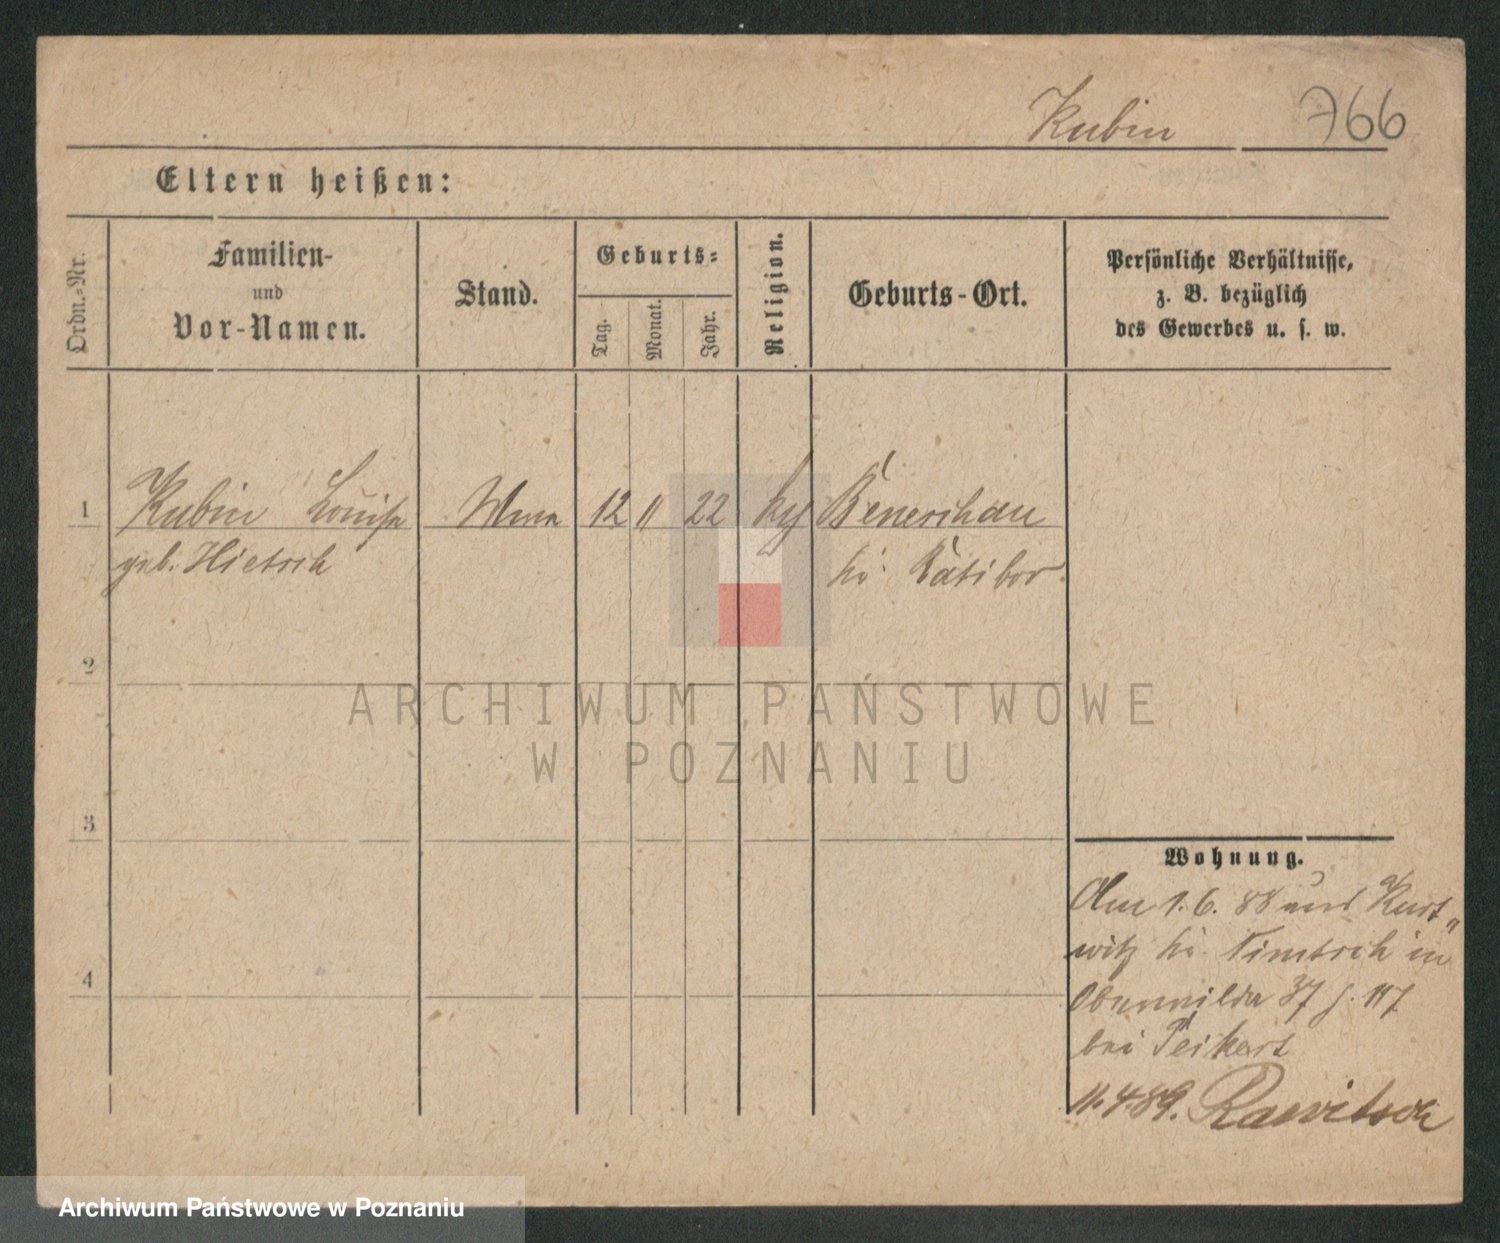 Kubin 766
Eltern heißen:
Ordn.-Nr.
Familien-
und
Vor-Namen.
Stand.
Geburts-
Tag.
Monat.
Jahr.
Religion.
Geburts-Ort.
Persönliche Verhältnisse,
z. B. bezüglich
des Gewerbes u. s. w.
1 Kubin Louise Wwe 12 11 22 Benerschau
geb. Hietsch Ratibor
2
ARCHIWUM PAŃSTWOWE
W POZNANIU
3
Wohnung.
Am 1. 6. 88 Kurt„
witz in
4
Oberwilda 37 117
bei Peikert
11.4.89. Rawitsch
Archiwum Państwowe w Poznaniu